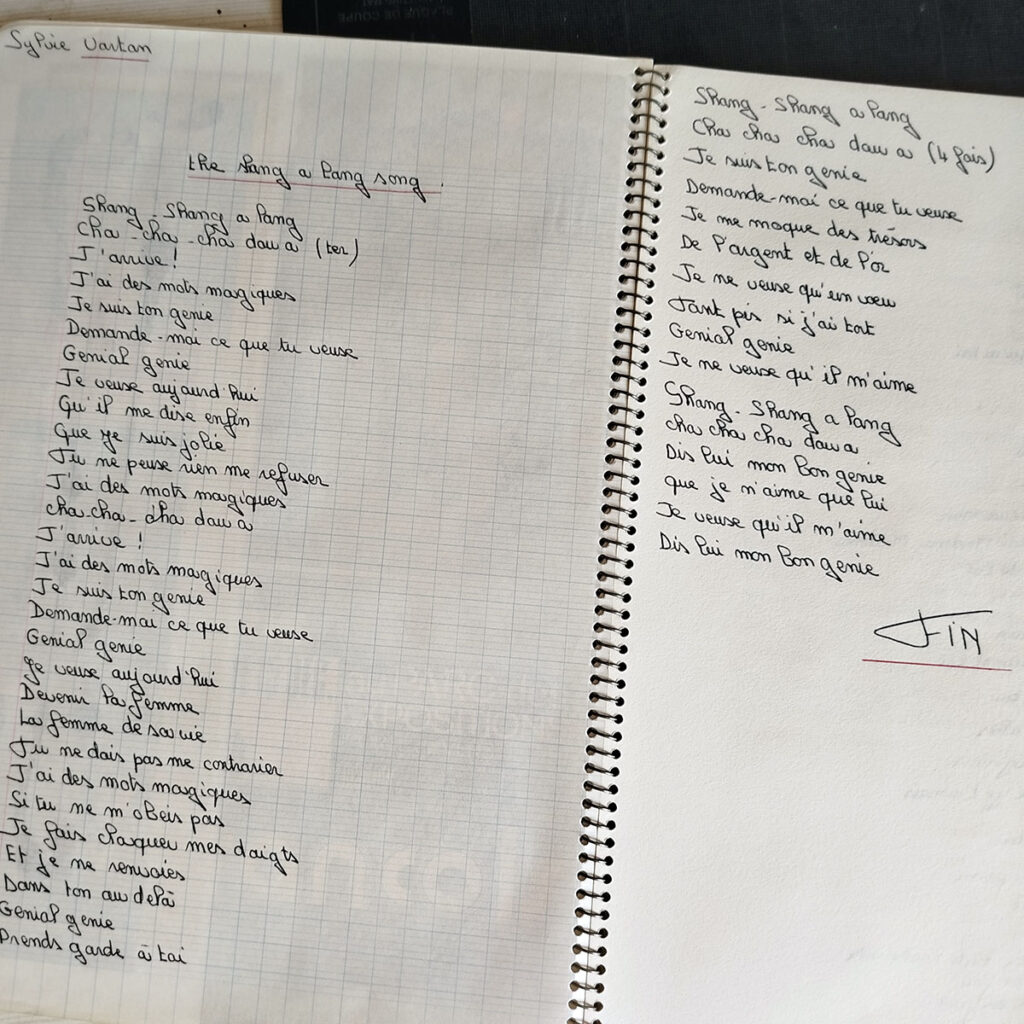 BLAQUE DE COUPE
Sylvie Vartan
the sang a lang song.
Shang - Shang a lang
Cha - cha - cha dawa (ter)
J'arrive !
J'ai des mots magiques
Je suis ton genie
Demande-moi ce que tu veuse
Genial genie
Je veuse aujourd'hui
Qu'il me dise enfin
Que je suis jolie
Tu ne peuse rien me refuser
J'ai des mots magiques
cha-cha-cha dawa
J'arrive !
J'ai des mots magiques
Je suis ton genie
Demande-moi ce que tu veuse
Genial genie
Je veuse aujourd'hui
Devenir la femme
La femme de sa vie
Tu ne dois pas me contrarier
J'ai des mots magiques
Si tu ne m'obeis pas
Je fais claquer mes doigts
Et je ne renvoies
Dans ton au delà
Genial genie
Prends garde à toi
Shang - Shang a lang
Cha cha cha dawa (4 fois)
Je suis ton genie
Demande-moi ce que tu veuse
Je me moque des trésors
De l'argent et de l'or
Je ne veuse qu'un voeu
Tant pis si j'ai tort
Genial genie
Je ne veuse qu'il m'aime
Shang - Shang a lang
cha cha cha dawa
Dis lui mon bon genie
que je n'aime que lui
Je veuse qu'il m'aime
Dis lui mon bon genie
FIN